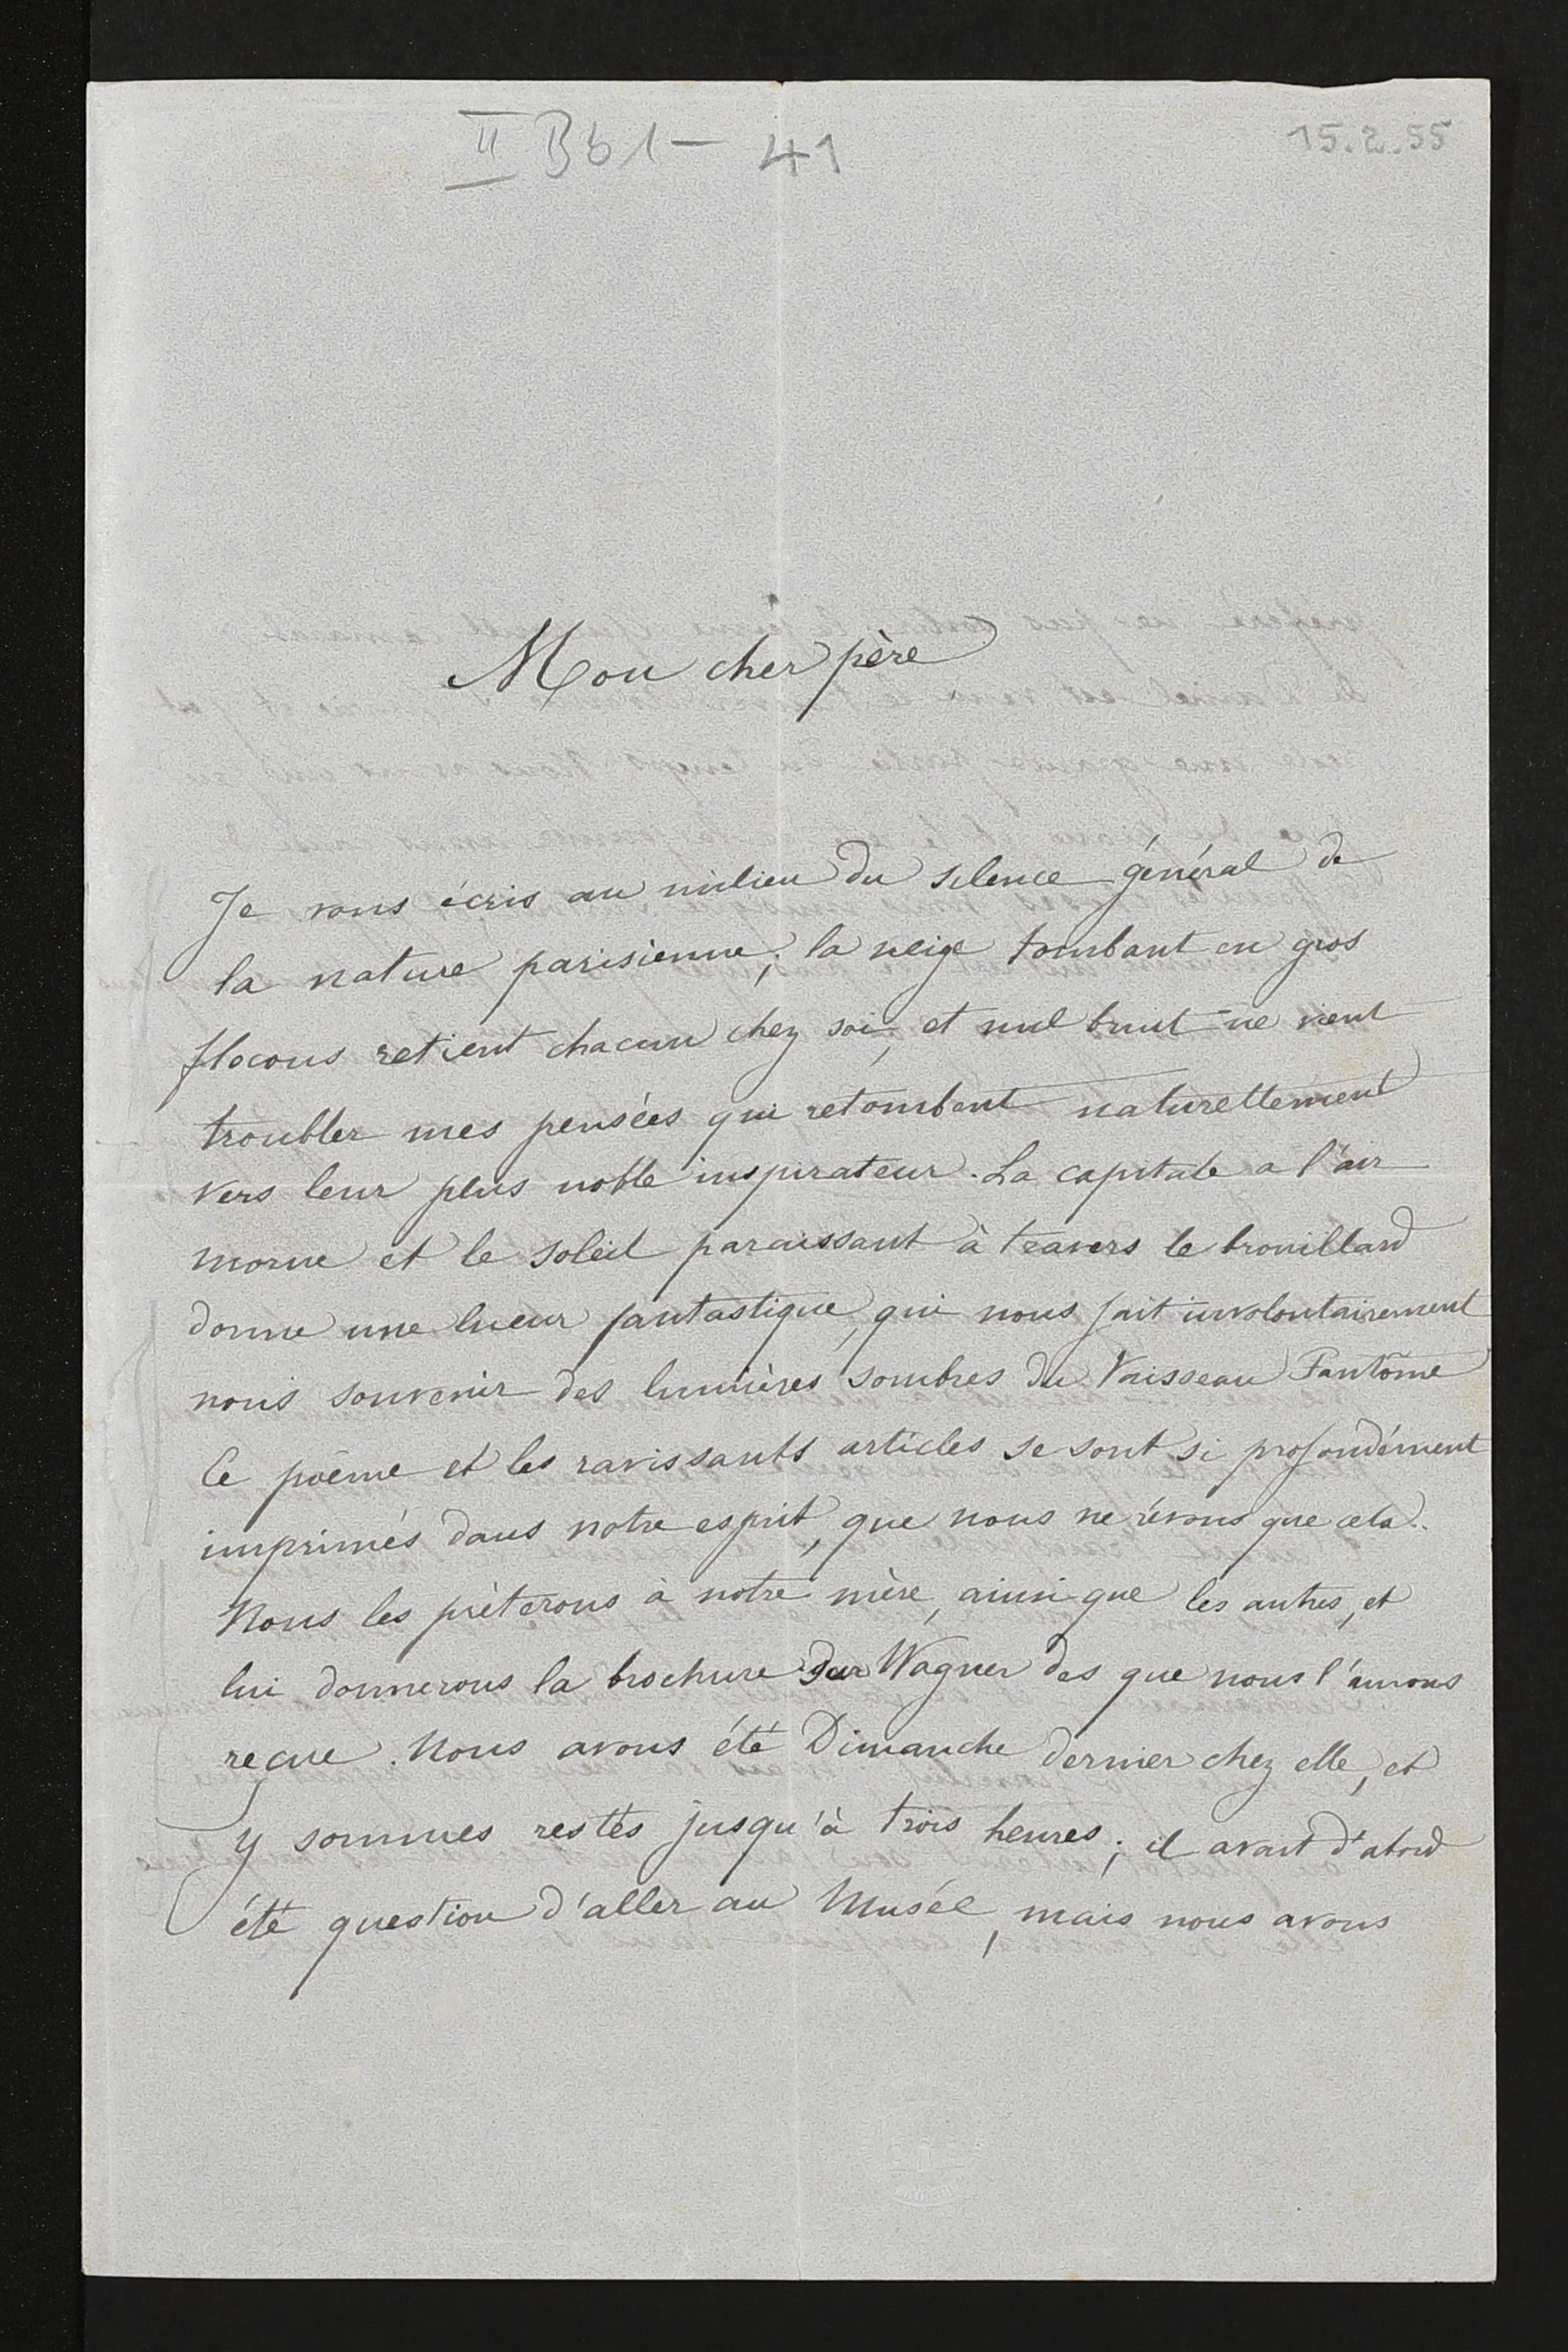 II Bb1-41
15.2.55
Mon cher père
Je vous écris au milieu du silence général de
la nature parisienne; la neige tombant en gros
flocons retient chacun chez soi, et nul bruit ne vient
troubler mes pensées qui retombent naturellement
vers leur plus noble inspirateur. La capitale a l'air
morne et le soleil paraissant à travers le brouillard
donne une lueur fantastique, qui nous fait involontairement
nous souvenir des lumières sombres du Vaisseau Fantôme
Ce poème et les ravissants articles se sont si profondément
imprimés dans notre esprit, que nous ne rêvons que cela.
Nous les prêterons à notre mère, ainsi que les autres, et
lui donnerons la brochure sur Wagner des que nous l'aurons
reçue. Nous avons été Dimanche dernier chez elle, et
y sommes restés jusqu'à trois heures; il avait d'abord
été question d'aller au Musée, mais nous avons